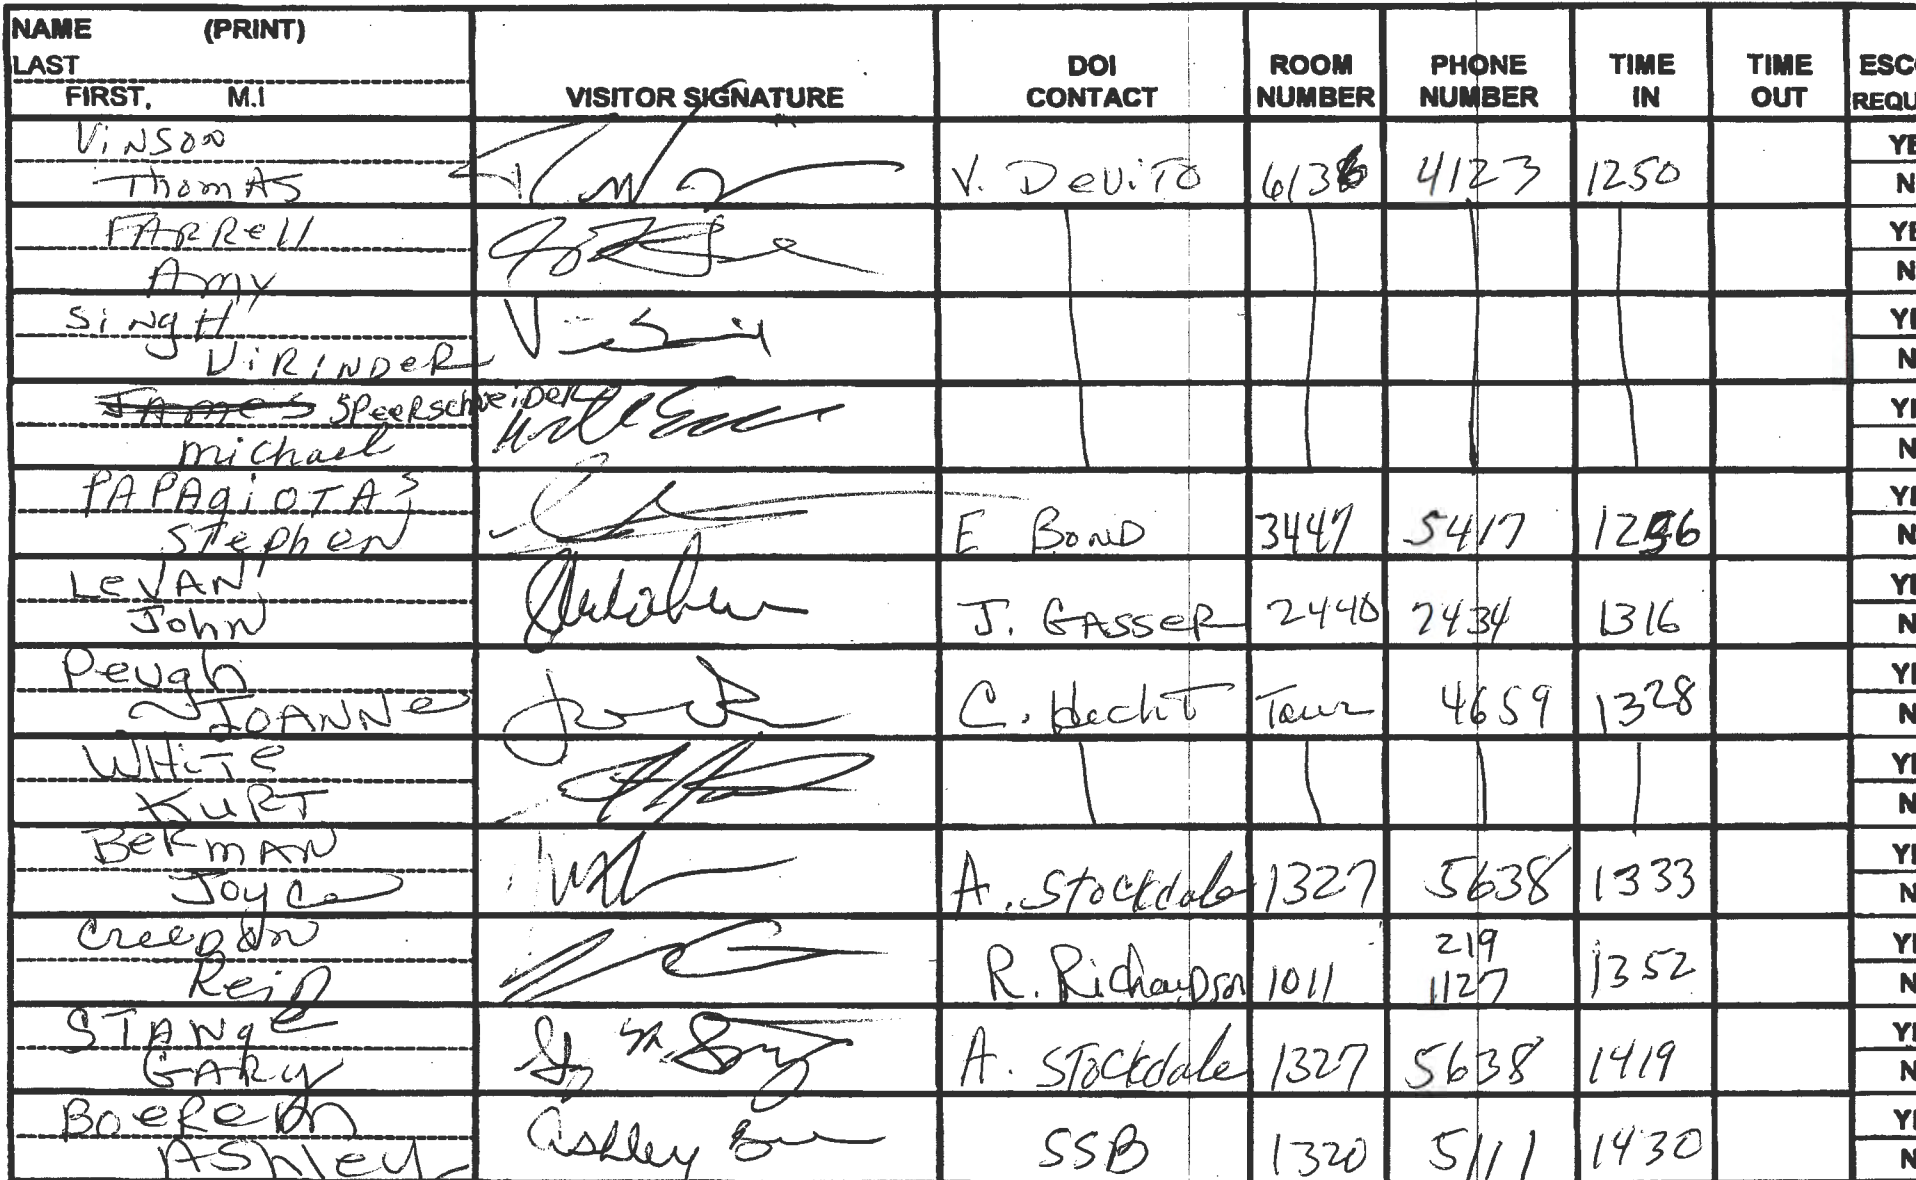 NAME (PRINT)
LAST
FIRST, M.I
VISITOR SIGNATURE
DOI
CONTACT
ROOM
NUMBER
PHONE
NUMBER
TIME
IN
TIME
OUT
ESCO
REQU
Vinson
Thomas V. DeViTo 613 4123 1250 YE
N
FARRell
Amy YE
N
SingH
ViRINDER YE
N
James SPeerschneider
michael YE
N
PAPAgiOTAS
Stephen E Bond 3447 5417 1256 YE
N
LeVAN
John J. GASSER 2440 7434 1316 YE
N
Peugh
JOANNe C. Hecht Tour 4659 1328 YE
N
WHiTe
KuRT YE
N
BeRMAN
Joyce A. Stockdale 1327 5638 1333 YE
N
Creedon
Reid R. RichaRDson 1011 219 1127 1352 YE
N
STANge
GARy A. STockdale 1327 5638 1419 YE
N
Ashley SSB 1320 5111 1430 YE
Ashley
N